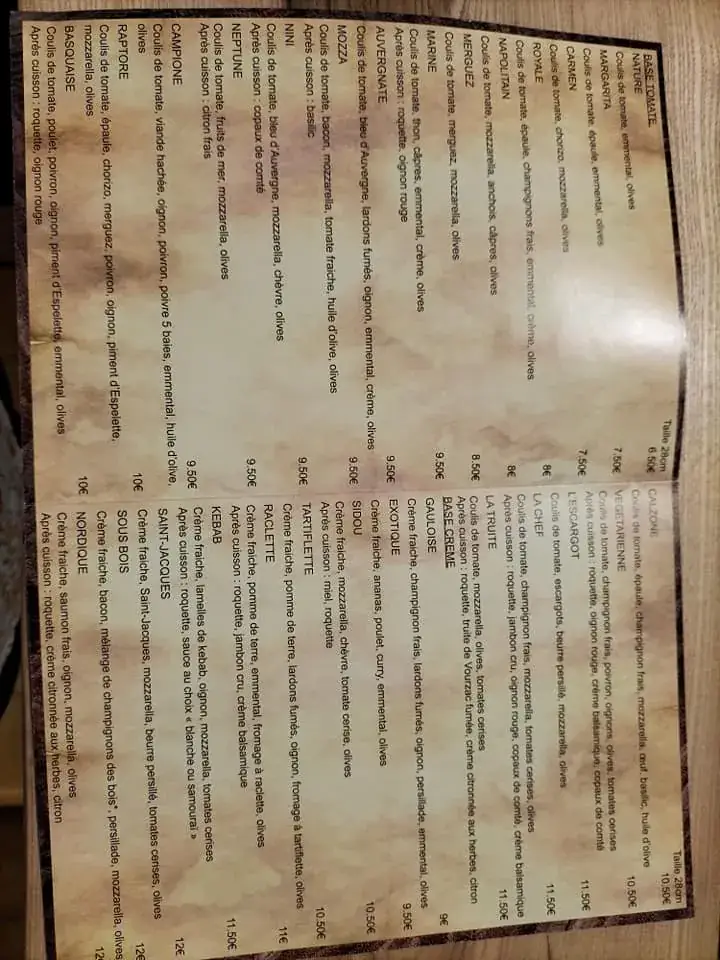 Taille 28cm
BASE TOMATE
NATURE 6.50€
Coulis de tomate, emmental, olives
MARGARITA 7.50€
Coulis de tomate, épaule, emmental, olives
CARMEN 7.50€
Coulis de tomate, chorizo, mozzarella, olives
ROYALE 8€
Coulis de tomate, épaule, champignons frais, emmental, crème, olives
NAPOLITAIN 8€
Coulis de tomate, mozzarella, anchois, câpres, olives
MERGUEZ 8.50€
Coulis de tomate, merguez, mozzarella, olives
MARINE 9.50€
Coulis de tomate, thon, câpres, emmental, crème, olives
Après cuisson : roquette, oignon rouge
AUVERGNATE 9.50€
Coulis de tomate, bleu d'Auvergne, lardons fumés, oignon, emmental, crème, olives
MOZZA 9.50€
Coulis de tomate, bacon, mozzarella, tomate fraiche, huile d'olive, olives
Après cuisson : basilic
NINI 9.50€
Coulis de tomate, bleu d'Auvergne, mozzarella, chèvre, olives
Après cuisson : copaux de comté
NEPTUNE 9.50€
Coulis de tomate, fruits de mer, mozzarella, olives
Après cuisson : citron frais
CAMPIONE 9.50€
Coulis de tomate, viande hachée, oignon, poivron, poivre 5 baies, emmental, huile d'olive,
olives
RAPTORE 10€
Coulis de tomate, épaule, chorizo, merguez, poivron, oignon, piment d'Espelette,
mozzarella, olives
BASQUAISE 10€
Coulis de tomate, poulet, poivron, oignon, piment d'Espelette, emmental, olives
Après cuisson : roquette, oignon rouge
Taille 28cm
CALZONE 10.50€
Coulis de tomate, épaule, champignon frais, mozzarella, œuf, basilic, huile d'olive
VEGETARIENNE 10.50€
Coulis de tomate, champignon frais, poivron, oignons, olives, tomates cerises
Après cuisson : roquette, oignon rouge, crème balsamique, copaux de comté
L'ESCARGOT 11.50€
Coulis de tomate, escargots, beurre persillé, mozzarella, olives
LA CHEF 11.50€
Coulis de tomate, champignon frais, mozzarella, tomates cerises, olives
Après cuisson : roquette, jambon cru, oignon rouge, copaux de comté, crème balsamique
LA TRUITE 11.50€
Coulis de tomate, mozzarella, olives, tomates cerises
Après cuisson : roquette, truite de Vourzac fumée, crème citronnée aux herbes, citron
BASE CREME
GAULOISE 9€
Crème fraiche, champignon frais, lardons fumés, oignon, persillade, emmental, olives
EXOTIQUE 9.50€
Crème fraiche, ananas, poulet, curry, emmental, olives
SIDOU 10.50€
Crème fraiche, mozzarella, chèvre, tomate cerise, olives
Après cuisson : miel, roquette
TARTIFLETTE 10.50€
Crème fraiche, pomme de terre, lardons fumés, oignon, fromage à tartiflette, olives
RACLETTE 11€
Crème fraiche, pomme de terre, emmental, fromage à raclette, olives
Après cuisson : roquette, jambon cru, crème balsamique
KEBAB 11.50€
Crème fraiche, lamelles de kebab, oignon, mozzarella, tomates cerises
Après cuisson : roquette, sauce au choix « blanche ou samouraï »
SAINT-JACQUES 12€
Crème fraiche, Saint-Jacques, mozzarella, beurre persillé, tomates cerises, olives
SOUS BOIS 12€
Crème fraiche, bacon, mélange de champignons des bois*, persillade, mozzarella, olives
NORDIQUE 12€
Crème fraiche, saumon frais, oignon, mozzarella, olives
Après cuisson : roquette, crème citronnée aux herbes, citron